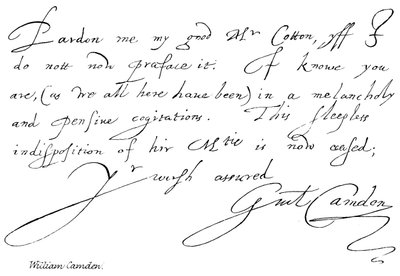 Pardon me my good Mr Cotton, yff I
do nott now preface it. I knowe you
are, (as we all here have been) in a melancholy
and pensive cogitations. This sleepless
indisposition of hir Mtie is now ceased;
Yr wush assured
Guil Camden
William Camden.